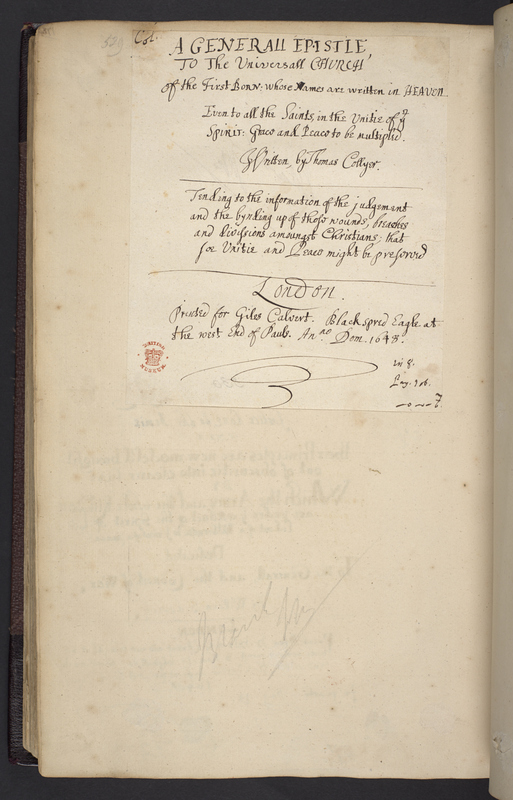 539
Col.
A GENERAll EPISTlE,
TO The Universall CHURCH
of the First Bonn: whose Names are written in HEAVON
Even to all the Saints, in the Unitie of yͤ
Spirit: Graco and Peaco to be multiplied.
Written by Thomas Collyer.
Tending to the information of the judgement
and the bynding up of thoso wounds, breaches
and Divisions amoungst Christians; that
soe Unitie and Peaco might be preserved
London.
Printed for Giles Calvert. Black spred Eagle at
the west End of Pauls. Anno Dom. 1648.
BRITISH
MUSEUM
in 8.
Pag. 106.
7.